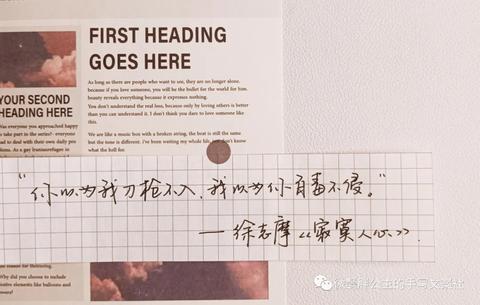 FIRST HEADING
GOES HERE
As long as there are people who want to see, they are no longer alone.
because if you love someone, you will be the bullet for the world for him.
beauty reveals everything because it expresses nothing.
You don't understand the real loss, because only by loving others is better
than you can understand it. I don't think you dare to love someone like
this.
We are like a music box with a broken string, the beat is still the same
but the tone is different. I've been waiting my whole life, just don't know
what the hell for.
YOUR SECOND
HEADING HERE
Was everyone you approached happy
to take part in the series? - everyone
had to deal with their own daily
"你以为我刀枪不入，我以为你百毒不侵。"
——徐志摩《寂寞人心》.
reason for
Why did you choose to include
creative elements like balloons and
的手写文